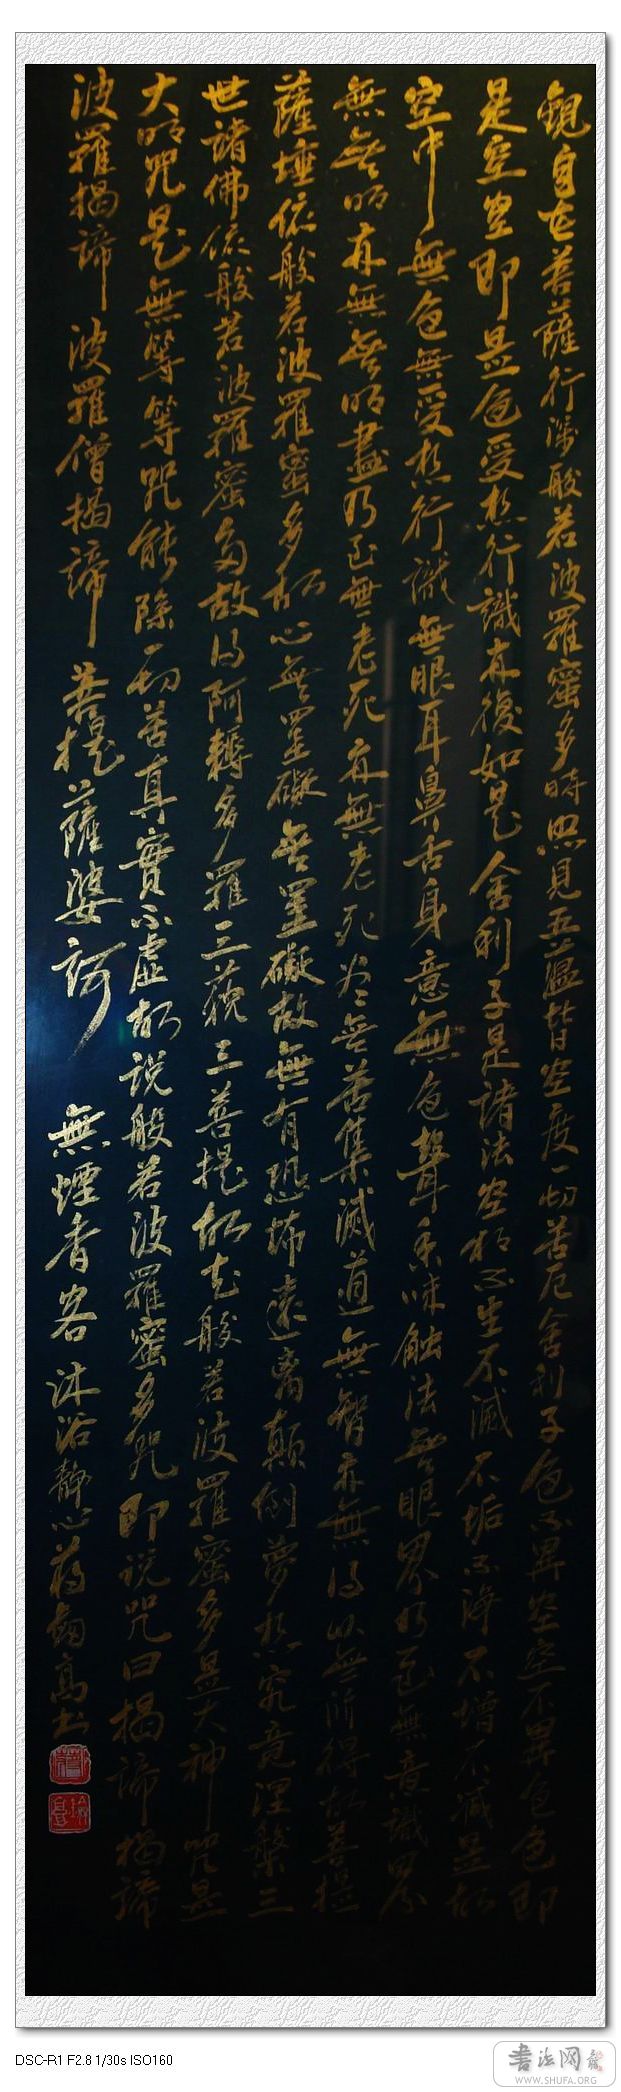 觀自在菩薩行深般若波羅蜜多時照見五蘊皆空度一切苦厄舍利子色不異空空不異色色即
是空空即是色受想行識亦復如是舍利子是諸法空相不生不滅不垢不淨不增不減是故
空中無色無受想行識無眼耳鼻舌身意無色聲香味觸法無眼界乃至無意識界
無無明亦無無明盡乃至無老死亦無老死盡無苦集滅道無智亦無得以無所得故菩提
薩埵依般若波羅蜜多故心無罣礙無罣礙故無有恐怖遠離顛倒夢想究竟涅槃三
世諸佛依般若波羅蜜多故得阿耨多羅三藐三菩提故知般若波羅蜜多是大神咒是
大明咒是無等等咒能除一切苦真實不虛故说般若波羅蜜多咒即说咒曰揭諦揭諦
波羅揭諦 波羅僧揭諦 菩提薩婆訶 無煙香客沐浴靜心蔣高书
DSC-R1 F2.8 1/30s ISO160
书法网
WWW.SHUFA.ORG